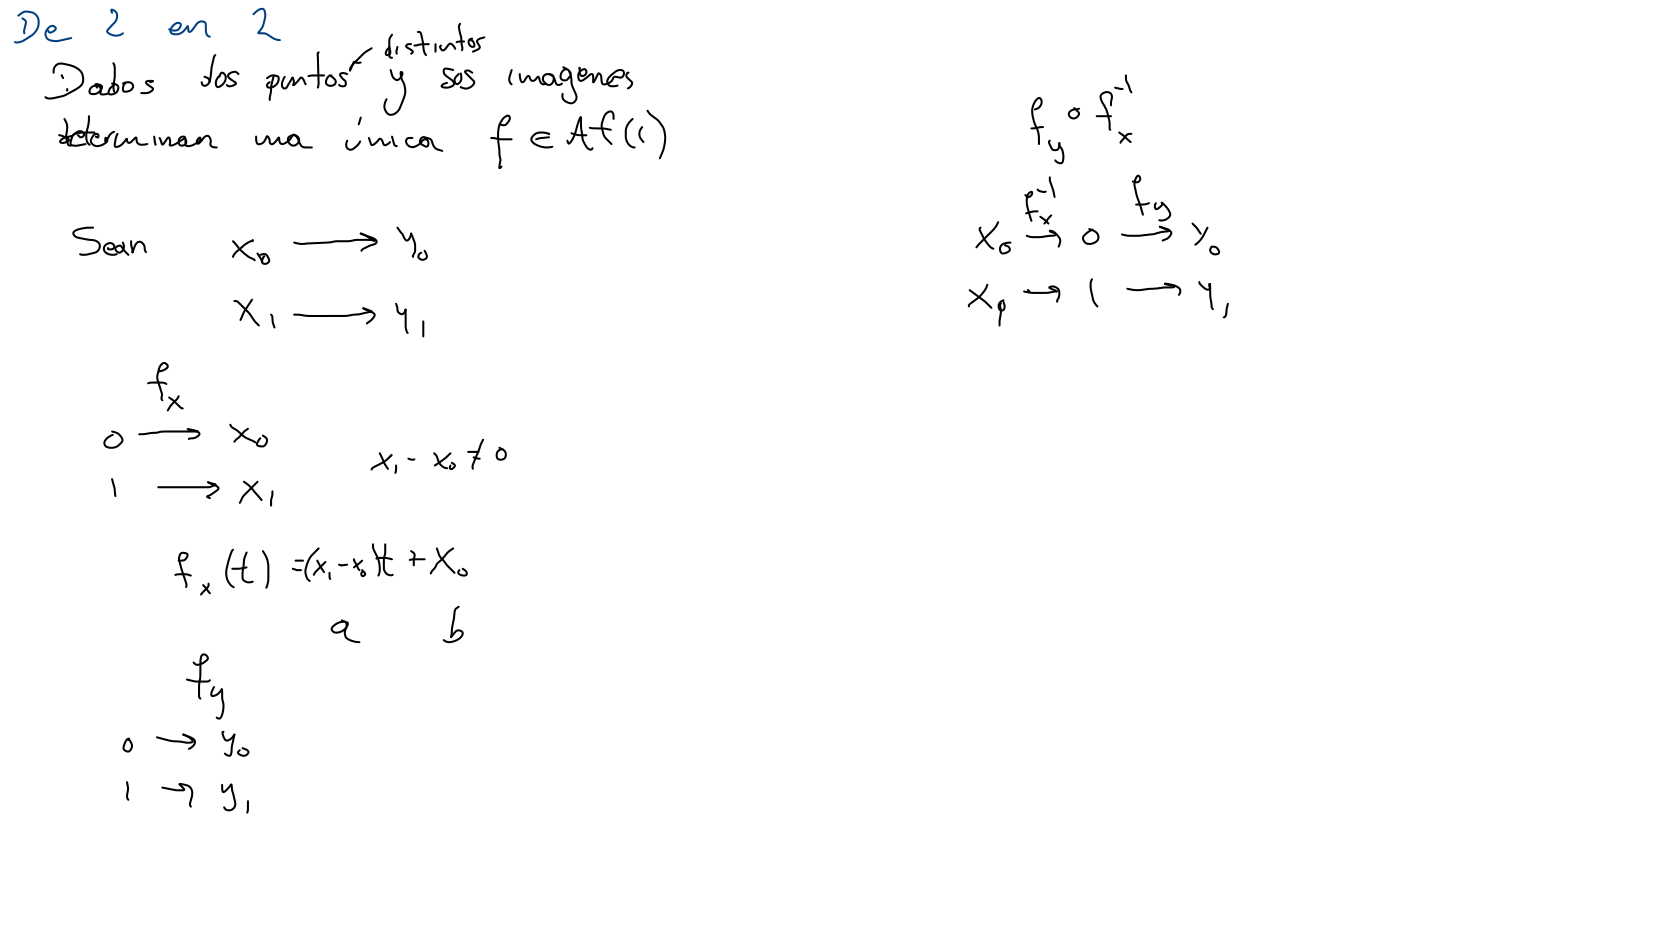 De 2 en 2
distintos
Dados dos puntos y sus imagenes
determinan una única f ∈ Af(1)
Sean x₀ → y₀
x₁ → y₁
fₓ
0 → x₀
1 → x₁
x₁ - x₀ ≠ 0
fₓ(t) = (x₁-x₀)t + x₀
a b
f_y
0 → y₀
1 → y₁
f_y ∘ fₓ⁻¹
fₓ⁻¹ f_y
x₀ → 0 → y₀
x₁ → 1 → y₁